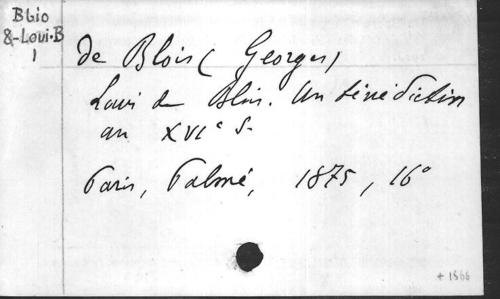 Bbio
&-Loui.B
1
de Blois (Georges)
Louis de Blois. Un bénédictin
au XVIe S.
Paris, Palmé, 1875, 16°
+ 1566